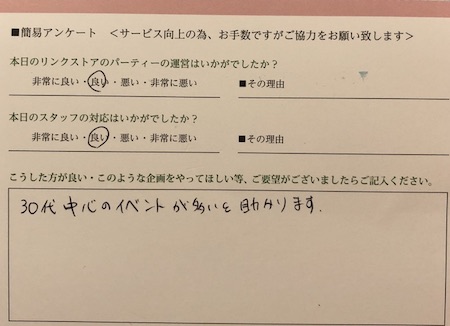 ■簡易アンケート ＜サービス向上の為、お手数ですがご協力をお願い致します＞
本日のリンクストアのパーティーの運営はいかがでしたか？
非常に良い・良い・悪い・非常に悪い ■その理由
本日のスタッフの対応はいかがでしたか？
非常に良い・良い・悪い・非常に悪い ■その理由
こうした方が良い・このような企画をやってほしい等、ご要望がございましたらご記入ください。
30代中心のイベントが多いと助かります.